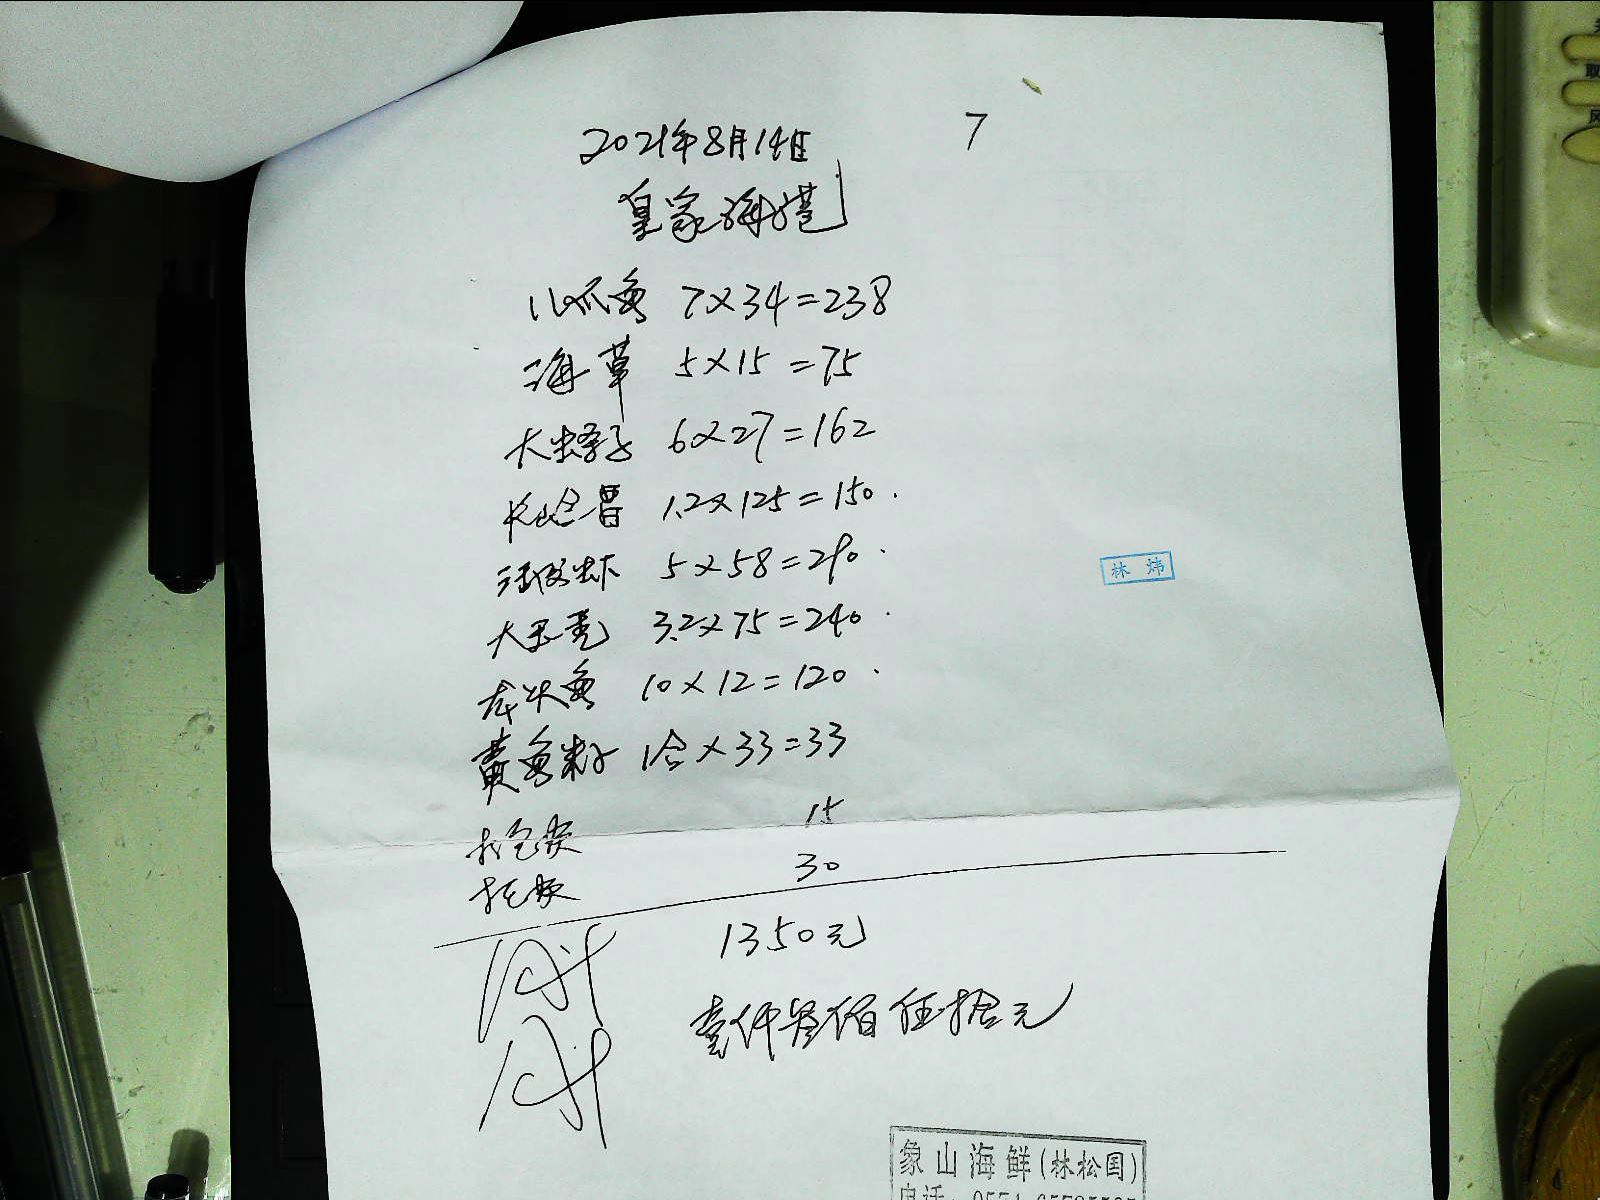 2021年8月14日
7
皇家海港
八爪鱼 7×34=238
海草 5×15=75
大蛏子 6×27=162
1.2×125=150.
活皮虾 5×58=290.
大玉壳 3.2×75=240.
龙头鱼 10×12=120.
黄鱼籽 1合×33=33
打包费 15
托费 30
1350元
壹仟叁佰伍拾元
林炜
象山海鲜(林松国)